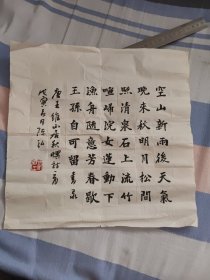 空山新雨後天氣
晚来秋明月松間
照清泉石上流竹
喧歸浣女蓮動下
漁舟随意芳春歇
王孫自可留
唐王維山居秋暝詩
戊寅春月陈